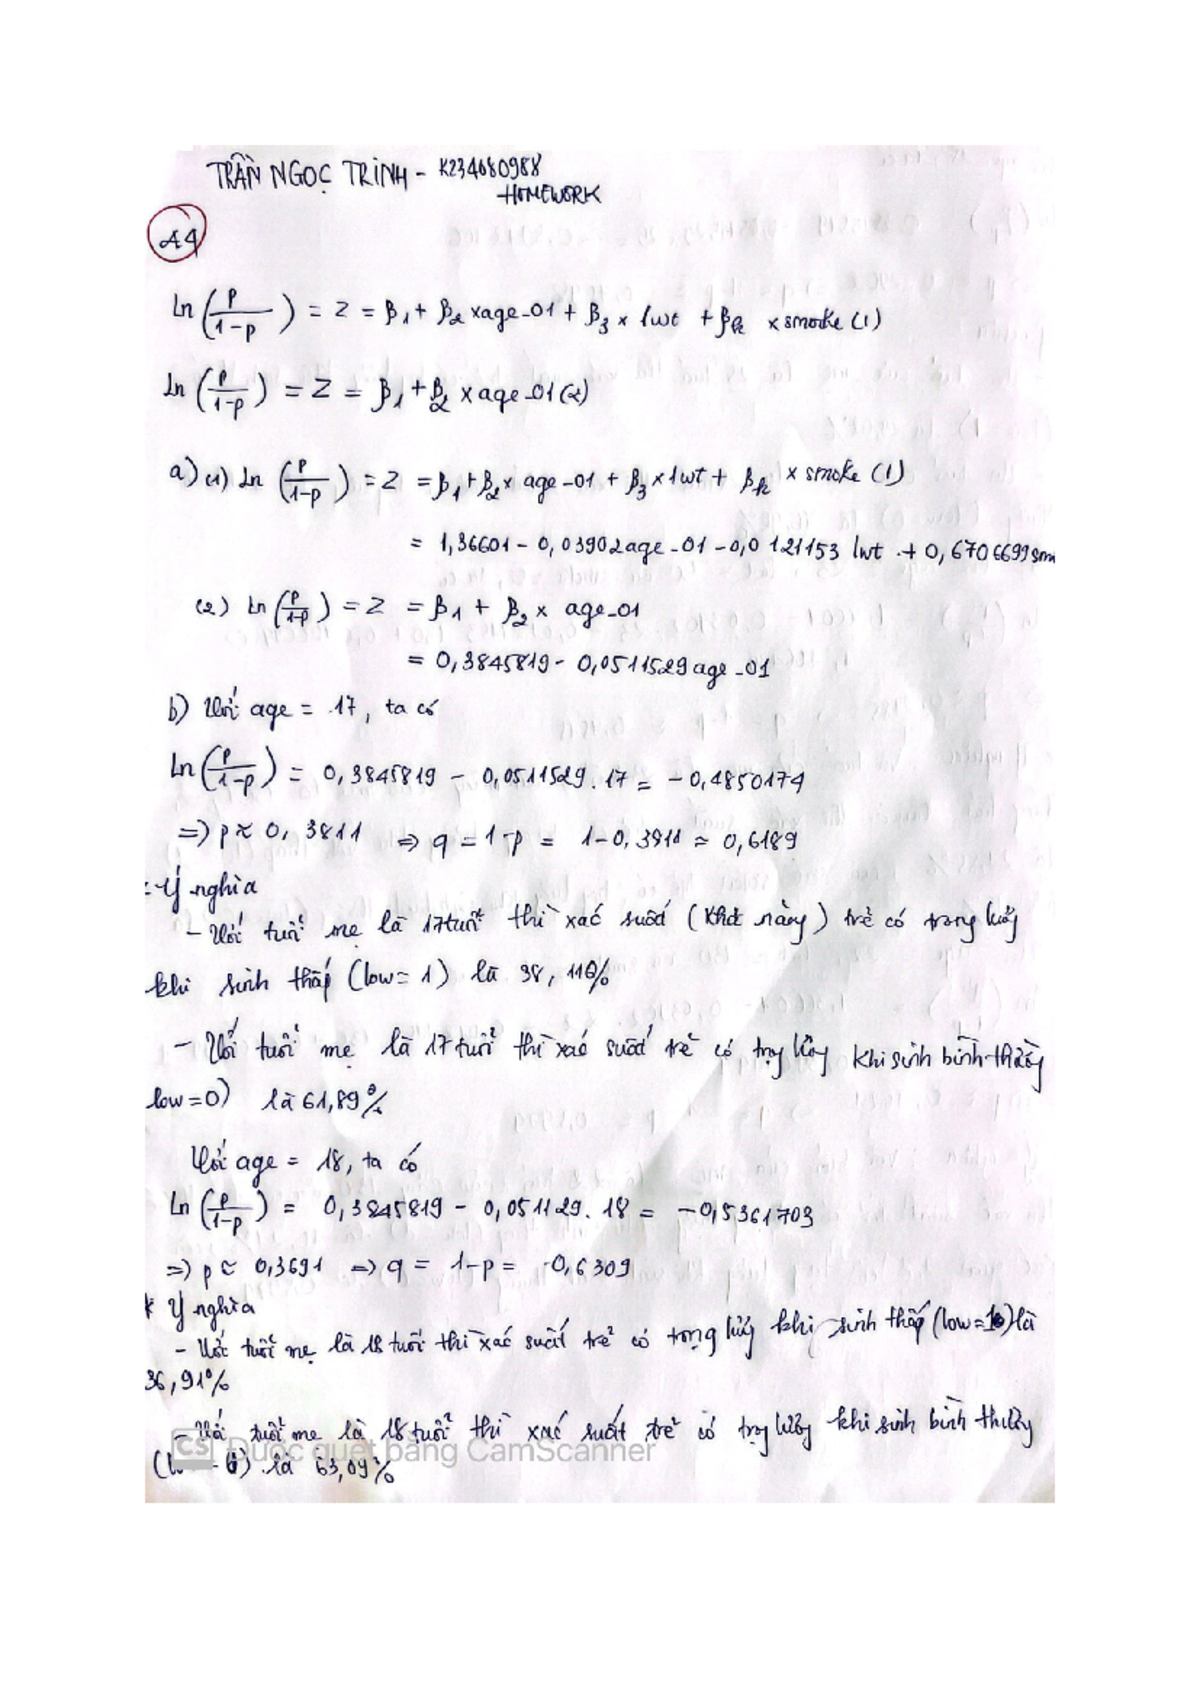 TRẦN NGỌC TRINH - K234080988
HOMEWORK
A4
Ln (p/1-p) = Z = β1 + β2 x age_01 + β3 x lwt + βk x smoke (1)
Ln (p/1-p) = Z = β1 + β2 x age_01 (2)
a) (1) Ln (p/1-p) = Z = β1 + β2 x age_01 + β3 x lwt + βk x smoke (1)
= 1,36601 - 0,03902 age_01 - 0,0121153 lwt + 0,6706699 sm
(2) Ln (p/1-p) = Z = β1 + β2 x age_01
= 0,3845819 - 0,0511529 age_01
b) Với age = 17, ta có
Ln (p/1-p) = 0,3845819 - 0,0511529 . 17 = - 0,4850174
=> p ≈ 0,3811 => q = 1-p = 1-0,3811 ≈ 0,6189
Ý nghĩa
- Với tuổi mẹ là 17 tuổi thì xác suất (khả năng) trẻ có trọng lượng
khi sinh thấp (low = 1) là 38,110%
- Với tuổi mẹ là 17 tuổi thì xác suất trẻ có trọng lượng khi sinh bình thường
low = 0) là 61,89%
Với age = 18, ta có
Ln (p/1-p) = 0,3845819 - 0,051129 . 18 = -0,5361703
=> p ≈ 0,3691 => q = 1-p = 0,6309
* Ý nghĩa
- Với tuổi mẹ là 18 tuổi thì xác suất trẻ có trọng lượng khi sinh thấp (low = 1) là
36,91%
- Với tuổi mẹ là 18 tuổi thì xác suất trẻ có trọng lượng khi sinh bình thường
CS Được quét bằng CamScanner
(low = 0) là 63,09%